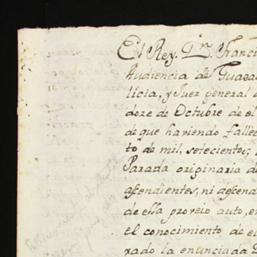 El Rey. Dn. Franci
Audiencia de Guada
licia, y Juez general d
doze de Octubre de el
de que haviendo fallec
to de mil, setecientos,
Parada originaria d
ascendientes, ni descend
de ella proveio auto, en
el conocimiento de e
xado la enunciada D